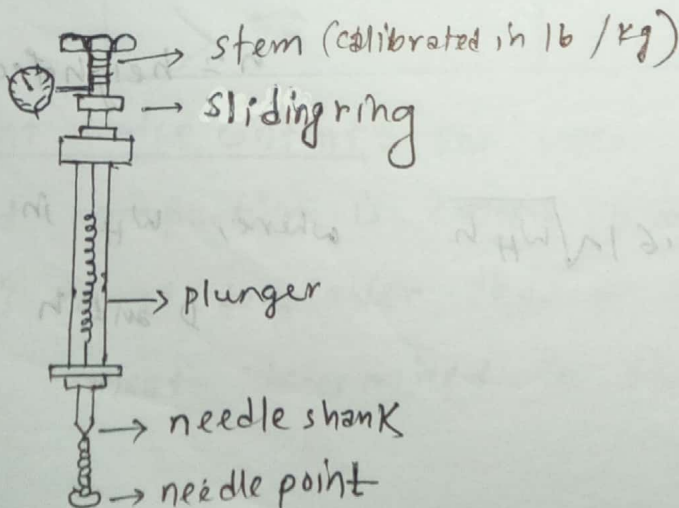 stem (calibrated in lb / kg)
sliding ring
plunger
needle shank
needle point